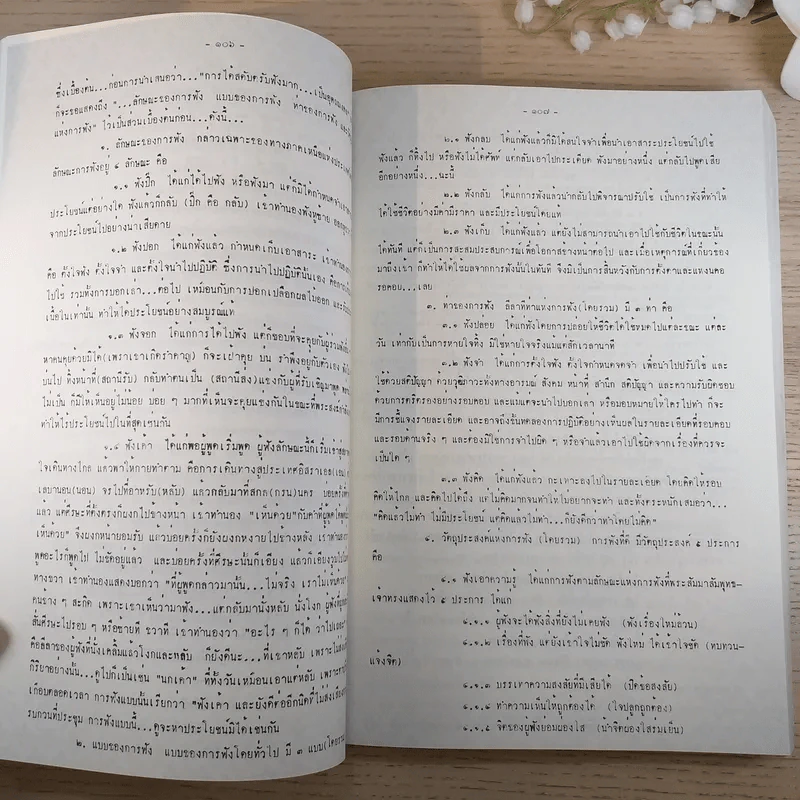 - ๑๐๖ -
ซึ่งเบื้องต้น...ก่อนการนำเสนอว่า..."การได้สดับตรับฟังมาก...เป็นอุดม
ก็จะขอแสดงถึง "...ลักษณะของการฟัง แบบของการฟัง ท่าของการฟัง และ
แห่งการฟัง" ไว้เป็นส่วนเบื้องต้นก่อน...ดังนี้...
๑. ลักษณะของการฟัง กล่าวเฉพาะของทางภาคเหนือแห่งประเทศ
ลักษณะการฟังอยู่ ๔ ลักษณะ คือ
๑.๑ ฟังปิ๊ก ได้แก่ได้ไปฟัง หรือฟังมา แต่ก็มิได้กำหนดจำ
ประโยชน์แต่อย่างใด ฟังแล้วก็กลับ (ปิ๊ก คือ กลับ) เข้าทำนองฟังหูซ้าย
จากประโยชน์ไปอย่างน่าเสียดาย
๑.๒ ฟังปอก ได้แก่ฟังแล้ว กำหนดเก็บเอาสาระ
คือ ตั้งใจฟัง ตั้งใจจำ และตั้งใจนำไปปฏิบัติ ซึ่งการนำไปปฏิบัตินั้นเอง คือการ
ไปใช้ รวมทั้งการบอกเล่า...ต่อไป เหมือนกับการปอกเปลือกผลไม้ออก และ
เนื้อในเท่านั้น ทำให้ได้ประโยชน์อย่างสมบูรณ์แท้
๑.๓ ฟังจอก ได้แก่การได้ไปฟัง แต่ก็ชอบที่จะคุยกับผู้ร่วมฟัง
หาคนคุยด้วยมิได้(เพราะเขาเกิดรำคาญ) ก็จะเป่าคุย บน รำพึงอยู่กับตัวเอง
บนไป ทั้งหน้าที่(สถานีรับ) กลับทำตนเป็น (สถานีส่ง)แข่งกับผู้ที่รับเชิญมาพูด
ไม่เป็น ก็มีให้เห็นอยู่ไม่น้อย บ่อย ๆ มากที่เห็นจะคุยแข่งกันในขณะที่พระสงฆ์
ทำให้ไร้ประโยชน์ไปในที่สุดเช่นกัน
๑.๔ ฟังเค้า ได้แก่พอผู้พูดเริ่มพูด ผู้ฟังลักษณะนี้ก็เริ่มเข้า
ใจเดินทางไกล แล้วพาให้กายทำตาม คือการเดินทางสู่ประเทศอิสราเอล(เอน)
เลบานอน(นอน) จรไปที่อาหรับ(หลับ) แล้วกลับมาที่สกล(กรน)นคร บ่อยครั้ง
แล้ว แต่ศีรษะที่ตั้งตรงก็ยกไปข้างหน้า เข้าทำนอง "เห็นด้วย"กับคำที่ผู้พูดได้พูด
ด้วย" จึงผงกหน้ายอมรับ แต่บ่อยครั้งก็ยังผงกหงายไปข้างหลัง เข้าทำนอง
พูดอะไรก็พูดไป ไม่ขัดอยู่แล้ว และบ่อยครั้งที่ศีรษะนั้นก็เอียง แล้วก็เอียงวูบไป
ทางขวา เข้าทำนองแสดงบอกว่า "ที่ผู้พูดกล่าวมานั้น...ไม่จริง เราไม่เห็นด้วย
คนข้าง ๆ สะกิด เพราะเขาเห็นว่ามาฟัง...แต่กลับมานั่งหลับ นั่งโงก ผู้ฟัง
สั่นศีรษะไปรอบ ๆ หรือซ้ายที ขวาที เข้าทำนองว่า "อะไร ๆ ก็ได้ ว่าไปเถอะ
คือลีลาของผู้ฟังที่นั่งเคลิ้มแล้วโงกและหลับ ก็ยังดีนะ...ที่เขาหลับ เพราะไม่
กิริยาอย่างนั้น...ดูไปก็เป็นเช่น "นกเค้า" ที่ทั้งวันเหมือนเอาแต่หลับ เพราะ
เกือบตลอดเวลา การฟังแบบนั้นเรียกว่า "ฟังเค้า และยังดีต่ออีกนิดที่ไม่ส่งเสียง
รบกวนที่ประชุม การฟังแบบนี้...ดูจะหาประโยชน์มิได้เช่นกัน
๒. แบบของการฟัง แบบของการฟังโดยทั่วไป มี ๓ แบบ(โดยรวม)
- ๑๐๗ -
๒.๑ ฟังกลบ ได้แก่ฟังแล้วก็มิได้สนใจจำเพื่อนำเอาสาระประโยชน์ไปใช้
ฟังแล้ว ก็ทิ้งไป หรือฟังไม่ได้ศัพท์ แต่กลับเอาไปกระเดียด ฟังมาอย่างหนึ่ง แต่กลับไปพูดเสีย
อีกอย่างหนึ่ง...นะนี่
๒.๒ ฟังกลับ ได้แก่การฟังแล้วนำกลับไปพิจารณาปรับใช้ เป็นการฟังที่ทำให้
ได้ใช้ชีวิตอย่างมีค่ามีราคา และมีประโยชน์โดยแท้
๒.๓ ฟังเก็บ ได้แก่ฟังแล้ว แต่ยังไม่สามารถนำเอาไปใช้กับชีวิตในขณะนั้น
ได้ทันที แต่ก็เป็นการสะสมประสบการณ์เพื่อโอกาสข้างหน้าต่อไป และเมื่อเหตุการณ์ที่เกี่ยวข้อง
มาถึงเข้า ก็ทำให้ได้ใช้ผลจากการฟังนั้นในทันที จึงมิเป็นการสิ้นหวังกับการตั้งตาและแหงนคอ
รอคอย...เลย
๓. ท่าของการฟัง ลีลาที่ท่าแห่งการฟัง(โดยรวม) มี ๓ ท่า คือ
๓.๑ ฟังปล่อย ได้แก่ฟังโดยการปล่อยให้ชีวิตได้ใช้หมดไปแต่ละขณะ แต่ละ
วัน เท่ากับเป็นการหายใจทิ้ง มิใช่หายใจจริงแม้แต่สักเวลานาที
๓.๒ ฟังจำ ได้แก่การตั้งใจฟัง ตั้งใจกำหนดจดจำ เพื่อนำไปปรับใช้ และ
ใช้ด้วยสติปัญญา ด้วยวุฒิภาวะทั้งทางอารมณ์ สังคม หน้าที่ สำนึก สติปัญญา และความรับผิดชอบ
ด้วยการตริตรองอย่างรอบคอบ และแม้แต่จะนำไปบอกเล่า หรือมอบหมายให้ใครไปทำ ก็จะ
มีการชี้แจงรายละเอียด และอาจถึงขั้นทดลองการปฏิบัติอย่างเห็นผลในรายละเอียดที่รอบคอบ
และรอบด้านจริง ๆ และต้องมิใช่การจำไปผิด ๆ หรือจำแล้วเอาไปใช้ผิดจากเรื่องที่ควรจะ
เป็นใด ๆ
๓.๓ ฟังคิด ได้แก่ฟังแล้ว กะเทาะลงไปในรายละเอียด โดยคิดให้รอบ
คิดให้ไกล และคิดไปให้ถึง แต่ไม่คิดมากจนทำให้ไม่อยากจะทำ และทั้งตระหนักเสมอว่า...
"คิดแล้วไม่ทำ ไม่มีประโยชน์ แต่คิดแล้วไม่ทำ...ก็ยังดีกว่าทำโดยไม่คิด"
๔. วัตถุประสงค์แห่งการฟัง (โดยรวม) การฟังที่ดี มีวัตถุประสงค์ ๕ ประการ
คือ
๔.๑ ฟังเอาความรู้ ได้แก่การฟังตามลักษณะแห่งการฟังที่พระสัมมาสัมพุทธ-
เจ้าทรงแสดงไว้ ๕ ประการ ได้แก่
๔.๑.๑ ผู้ฟังจะได้ฟังสิ่งที่ยังไม่เคยฟัง (ฟังเรื่องใหม่ล้วน)
๔.๑.๒ เรื่องที่ฟัง แต่ยังเข้าใจไม่ชัด ฟังใหม่ ได้เข้าใจชัด (ทบทวน-
แจ้งจิต)
๔.๑.๓ บรรเทาความสงสัยที่มีเสียได้ (ปิดข้อสงสัย)
๔.๑.๔ ทำความเห็นให้ถูกต้องได้ (ใจปลูกถูกต้อง)
๔.๑.๕ จิตของผู้ฟังย่อมผ่องใส (น้ำจิตผ่องใสร่มเย็น)